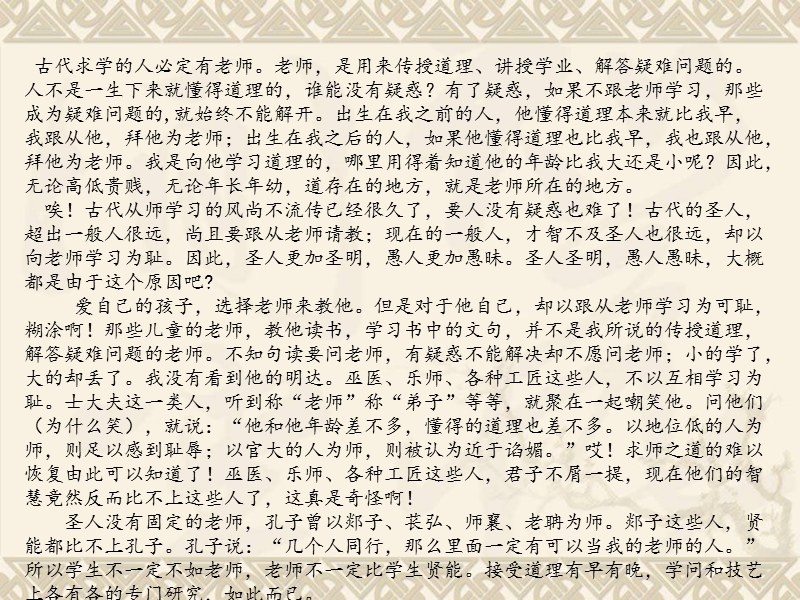 古代求学的人必定有老师。老师，是用来传授道理、讲授学业、解答疑难问题的。
人不是一生下来就懂得道理的，谁能没有疑惑？有了疑惑，如果不跟老师学习，那些
成为疑难问题的,就始终不能解开。出生在我之前的人，他懂得道理本来就比我早，
我跟从他，拜他为老师；出生在我之后的人，如果他懂得道理也比我早，我也跟从他，
拜他为老师。我是向他学习道理的，哪里用得着知道他的年龄比我大还是小呢？因此，
无论高低贵贱，无论年长年幼，道存在的地方，就是老师所在的地方。
唉！古代从师学习的风尚不流传已经很久了，要人没有疑惑也难了！古代的圣人，
超出一般人很远，尚且要跟从老师请教；现在的一般人，才智不及圣人也很远，却以
向老师学习为耻。因此，圣人更加圣明，愚人更加愚昧。圣人圣明，愚人愚昧，大概
都是由于这个原因吧?
爱自己的孩子，选择老师来教他。但是对于他自己，却以跟从老师学习为可耻，
糊涂啊！那些儿童的老师，教他读书，学习书中的文句，并不是我所说的传授道理，
解答疑难问题的老师。不知句读要问老师，有疑惑不能解决却不愿问老师；小的学了，
大的却丢了。我没有看到他的明达。巫医、乐师、各种工匠这些人，不以互相学习为
耻。士大夫这一类人，听到称“老师”称“弟子”等等，就聚在一起嘲笑他。问他们
（为什么笑），就说：“他和他年龄差不多，懂得的道理也差不多。以地位低的人为
师，则足以感到耻辱；以官大的人为师，则被认为近于谄媚。”哎！求师之道的难以
恢复由此可以知道了！巫医、乐师、各种工匠这些人，君子不屑一提，现在他们的智
慧竟然反而比不上这些人了，这真是奇怪啊！
圣人没有固定的老师，孔子曾以郯子、苌弘、师襄、老聃为师。郯子这些人，贤
能都比不上孔子。孔子说：“几个人同行，那么里面一定有可以当我的老师的人。”
所以学生不一定不如老师，老师不一定比学生贤能。接受道理有早有晚，学问和技艺
上各有各的专门研究，如此而已。